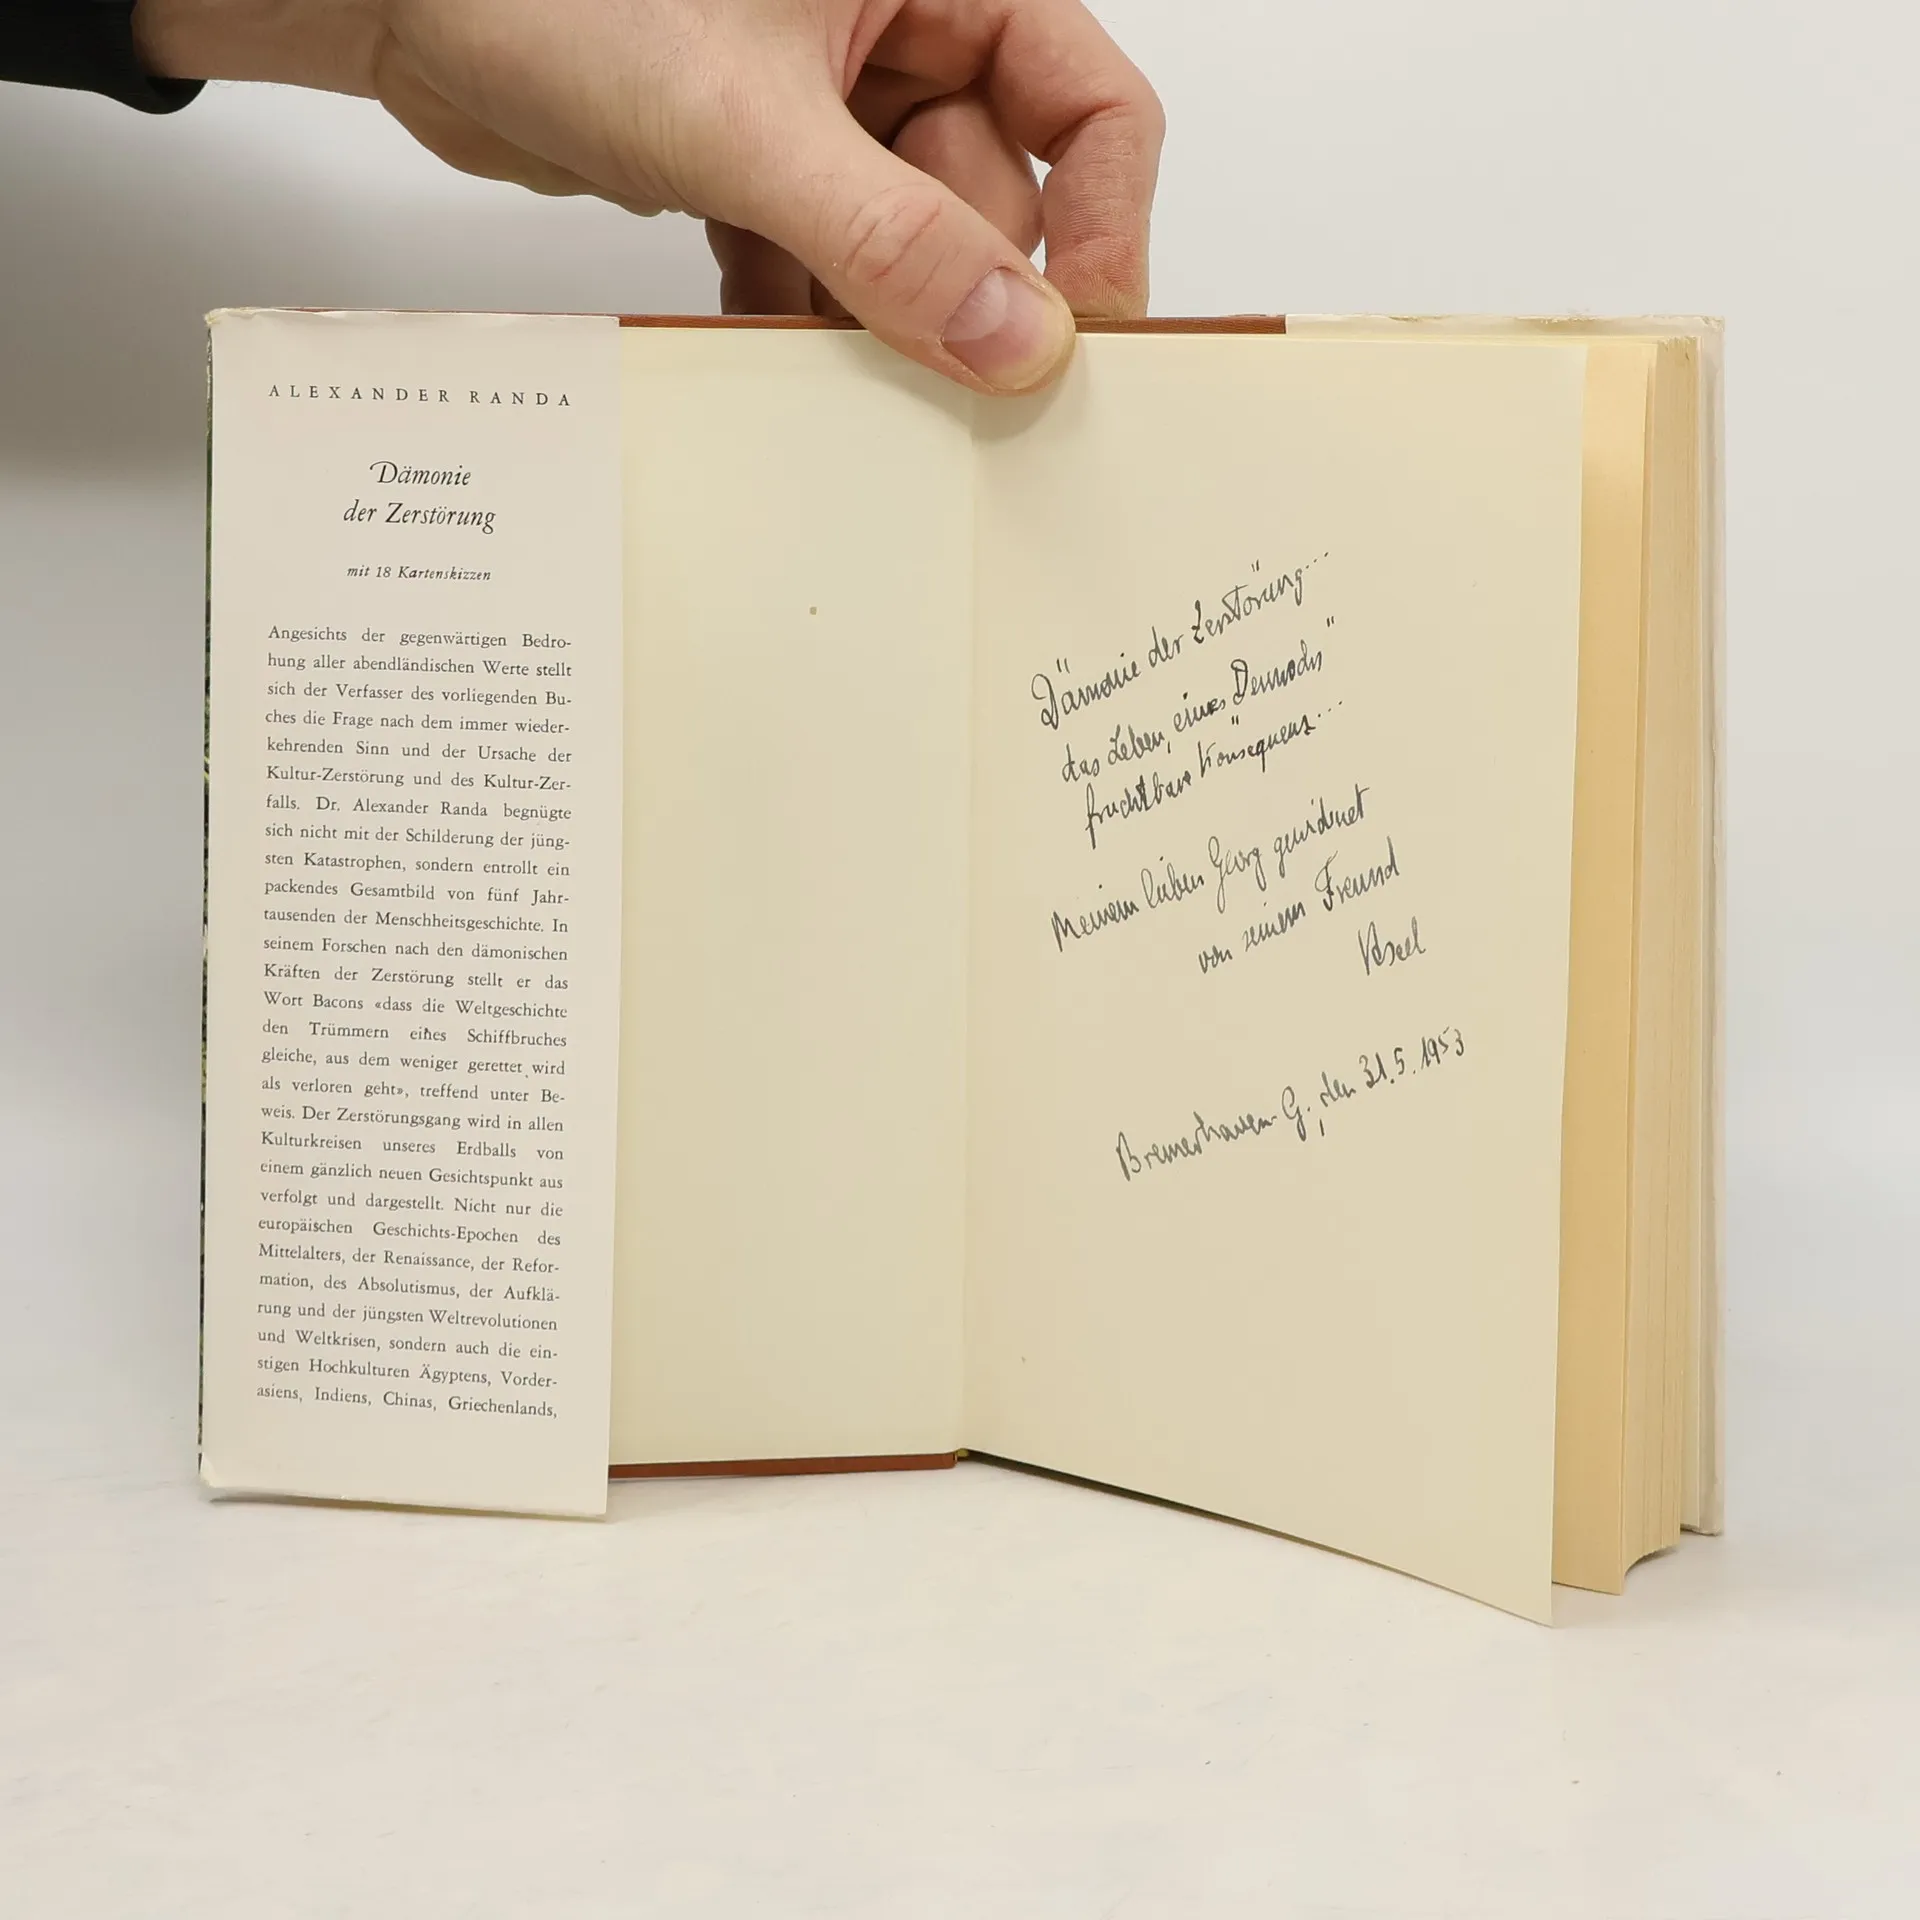 ALEXANDER RANDA
Dämonie
der Zerstörung
mit 18 Kartenskizzen
Angesichts der gegenwärtigen Bedro-
hung aller abendländischen Werte stellt
sich der Verfasser des vorliegenden Bu-
ches die Frage nach dem immer wieder-
kehrenden Sinn und der Ursache der
Kultur-Zerstörung und des Kultur-Zer-
falls. Dr. Alexander Randa begnügte
sich nicht mit der Schilderung der jüng-
sten Katastrophen, sondern entrollt ein
packendes Gesamtbild von fünf Jahr-
tausenden der Menschheitsgeschichte. In
seinem Forschen nach den dämonischen
Kräften der Zerstörung stellt er das
Wort Bacons «dass die Weltgeschichte
den Trümmern eines Schiffbruches
gleiche, aus dem weniger gerettet wird
als verloren geht», treffend unter Be-
weis. Der Zerstörungsgang wird in allen
Kulturkreisen unseres Erdballs von
einem gänzlich neuen Gesichtspunkt aus
verfolgt und dargestellt. Nicht nur die
europäischen Geschichts-Epochen des
Mittelalters, der Renaissance, der Refor-
mation, des Absolutismus, der Aufklä-
rung und der jüngsten Weltrevolutionen
und Weltkrisen, sondern auch die ein-
stigen Hochkulturen Ägyptens, Vorder-
asiens, Indiens, Chinas, Griechenlands,
Dämonie der Zerstörung...
das Leben, eines "Dennochs"
fruchtbare Konsequenz...
Meinem lieben Georg gewidmet
von seinem Freund
Bremerhaven-G., den 31.5.1953